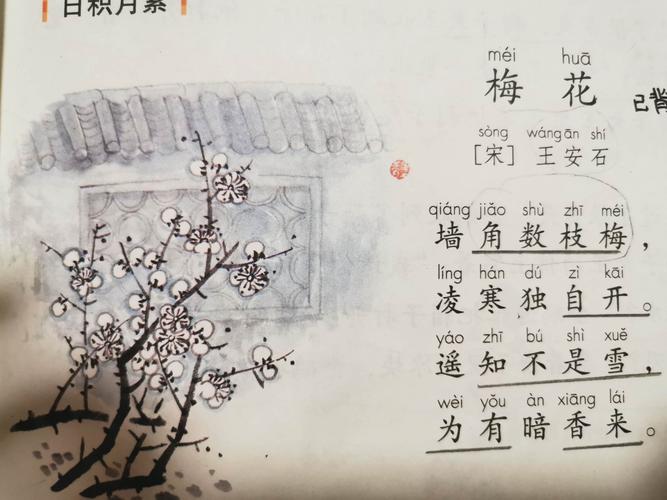 日积月累
méi huā
梅花
已背
sòng wáng ān shí
[宋] 王安石
qiáng jiǎo shù zhī méi
墙角数枝梅，
líng hán dú zì kāi
凌寒独自开。
yáo zhī bú shì xuě
遥知不是雪，
wèi yǒu àn xiāng lái
为有暗香来。